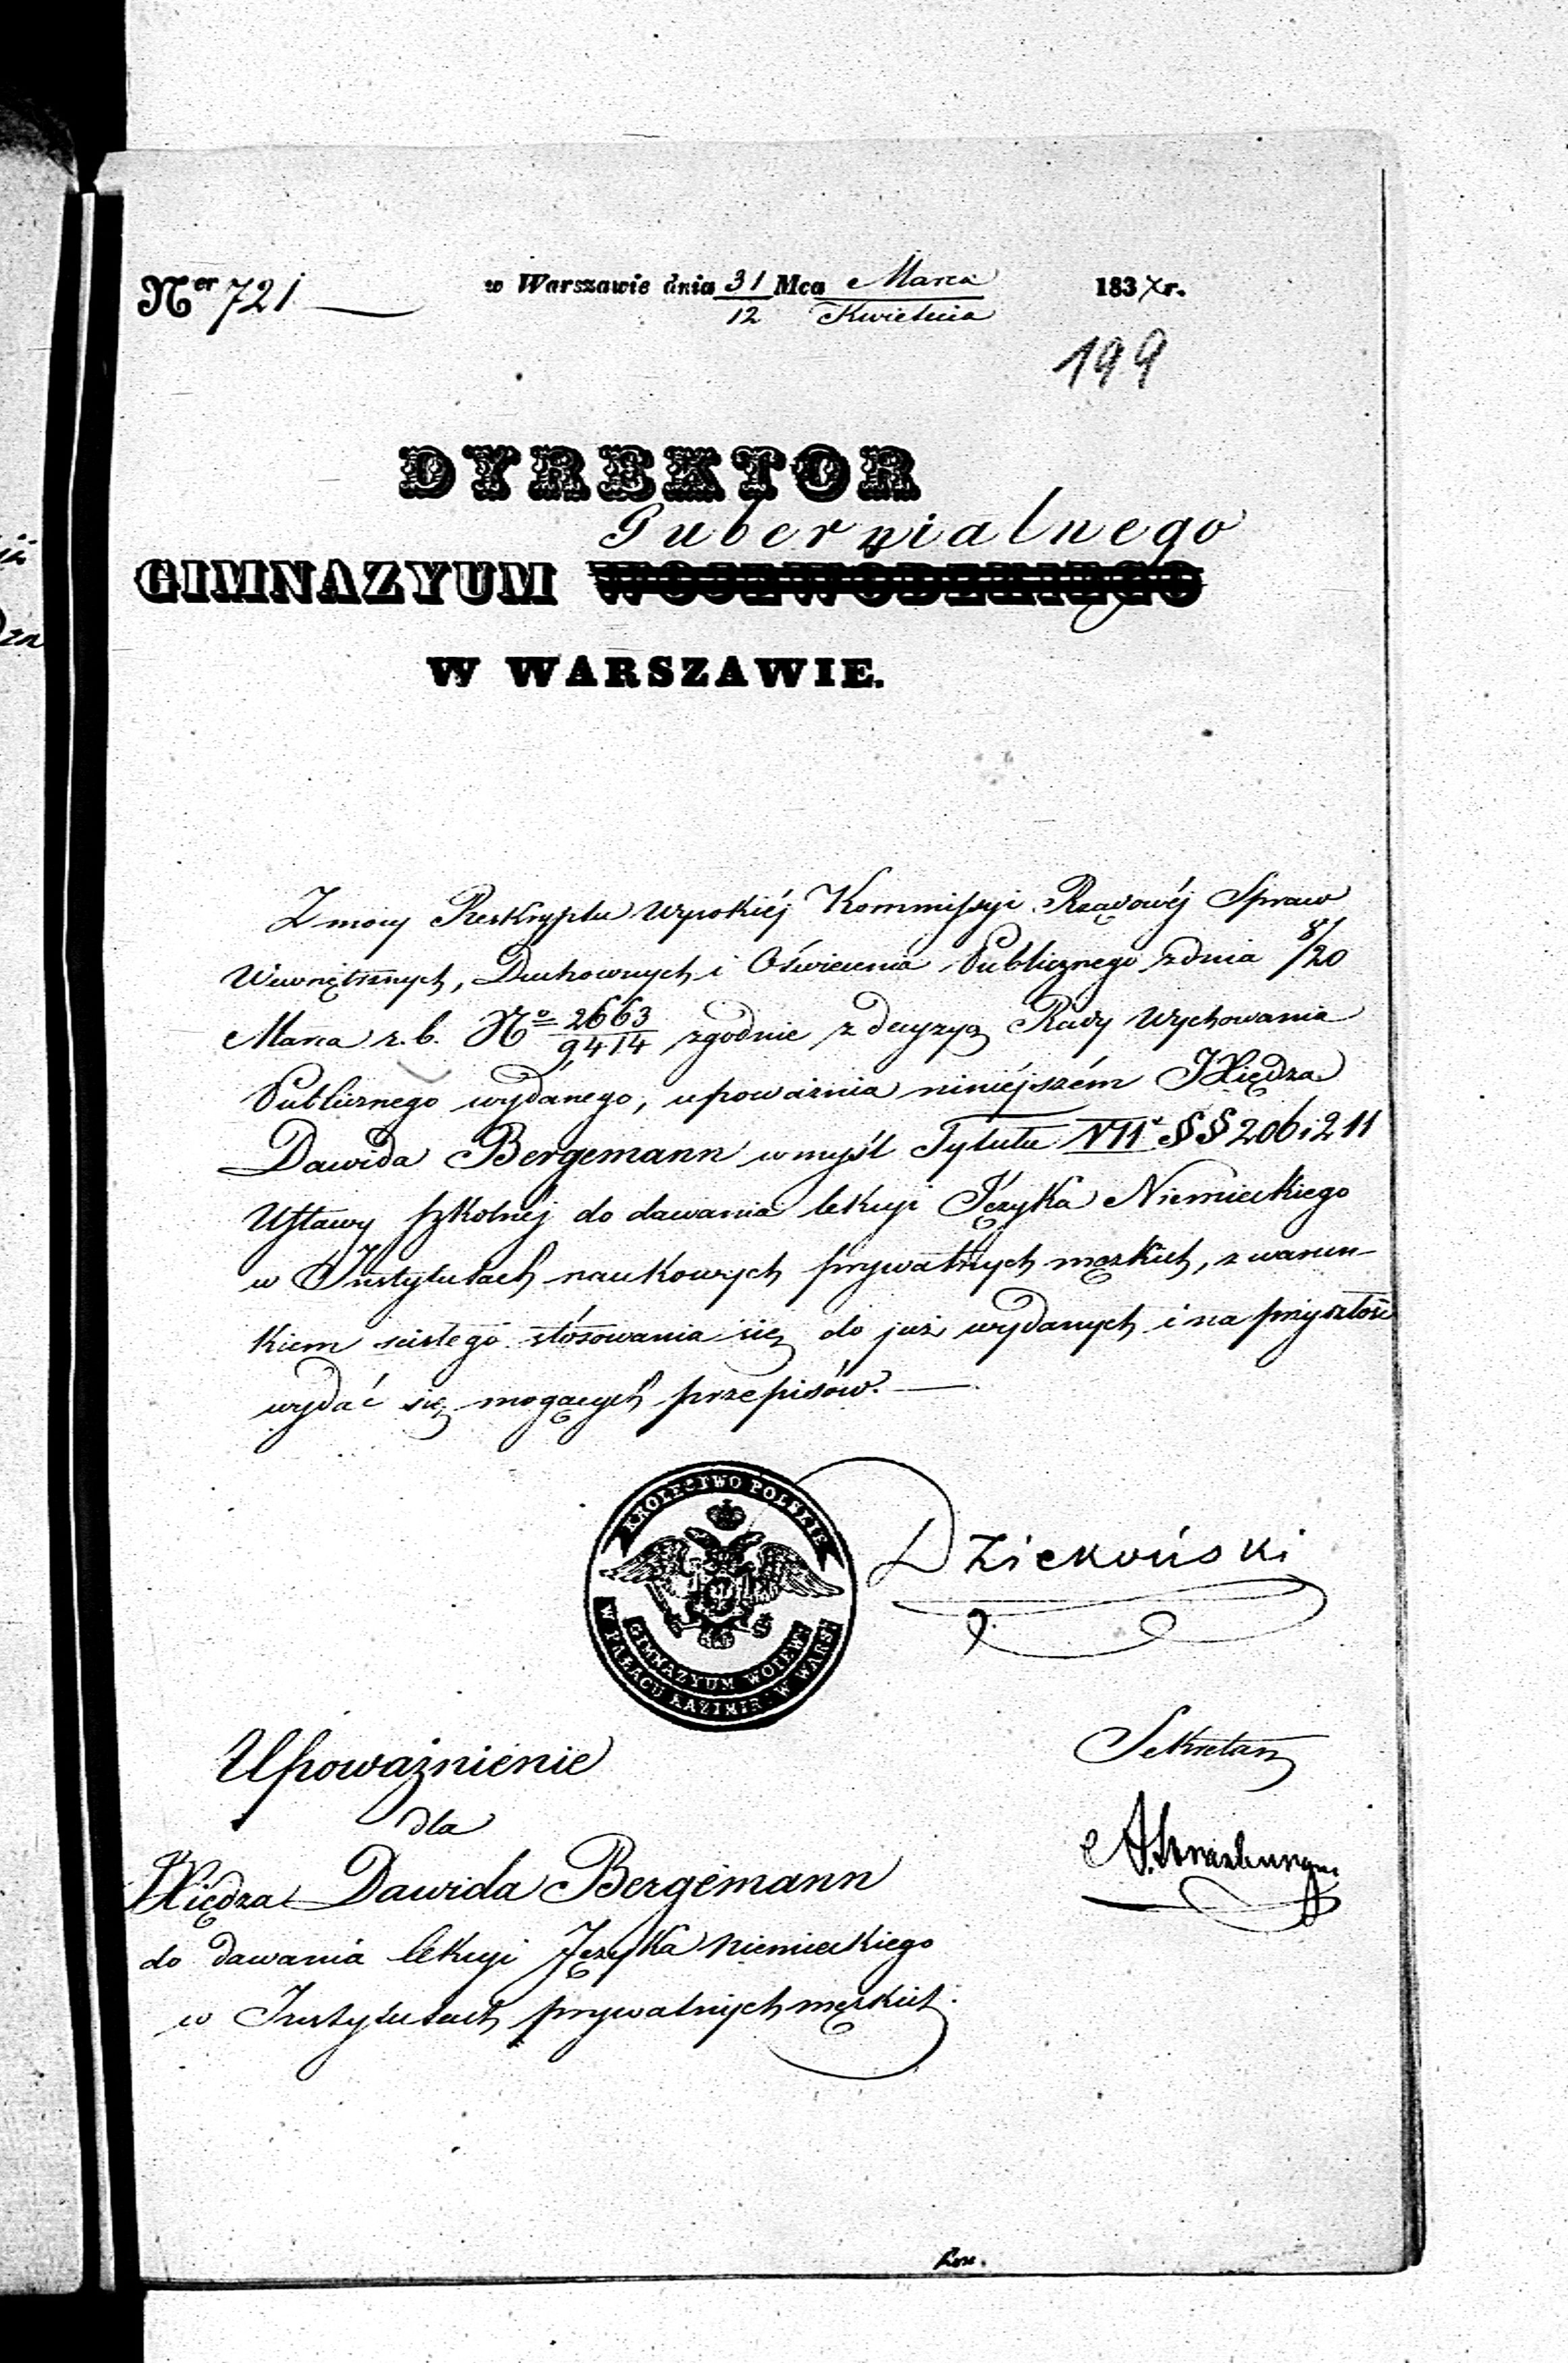 Ner 721 w Warszawie dnia 31 Mca Marca 1837 r.
12 Kwietnia
199
DYREKTOR
Gubernialnego
GIMNAZYUM WOJEWÓDZKIEGO
W WARSZAWIE.
Z mocy Reskryptu Wysokiéj Kommissyi Rządowéj Spraw
Wewnętrznych, Duchownych i Oświecenia Publicznego z dnia 8/20
Marca r. b. No 2663/9,414 zgodnie z decyzyą Rady Wychowania
Publicznego wydanego, upoważnia niniéjszém JXiędza
Dawida Bergemann w myśl Tytułu VII §§ 206 i 211
Ustawy Szkolnéj do dawania lekcyi Języka Niemieckiego
w Instytutach naukowych prywatnych męzkich, z warun-
kiem ścisłego stósowania się do już wydanych i na przyszłość
wydać się mogących przepisów.
KRÓLESTWO POLSKIE
GIMNAZYUM WOIEW.
W PAŁACU KAZIMIR: W WARS:
Dziekoński
Upoważnienie
Sekretarz
dla
JXiędza Dawida Bergemann
do dawania lekcyi Języka niemieckiego
w Instytutach prywatnych męzkich.